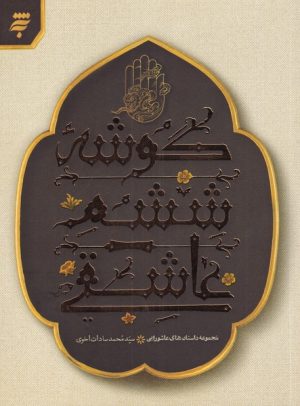 گوشهٔ
ششمِ
عاشقی
مجموعه داستان‌های عاشورایی سیّد محمد سادات اخوی